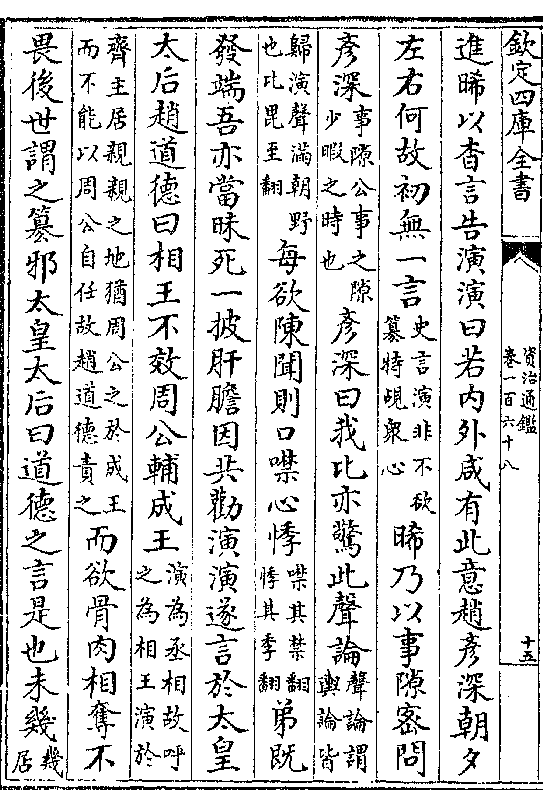 欽定四庫全書
資治通鑑
卷一百六十八
十五
進晞以杳言告演演曰若内外咸有此意趙彥深朝夕
左右何故初無一言
史言演非不欲
簒特覘衆心
晞乃以事隙密問
彥深
事隙公事之隙
少暇之時也
彥深曰我比亦驚此聲論
聲論謂
輿論皆
歸演聲滿朝野
也比毘至翻
每欲陳聞則口噤心悸
噤其禁翻
悸其季翻
弟既
發端吾亦當昧死一披肝膽因共勸演演遂言於太皇
太后趙道德曰相王不效周公輔成王
演為丞相故呼
之為相王演於
齊主居親親之地猶周公之於成王
而不能以周公自任故趙道德責之
而欲骨肉相奪不
畏後世謂之簒邪太皇太后曰道德之言是也未幾
幾
居